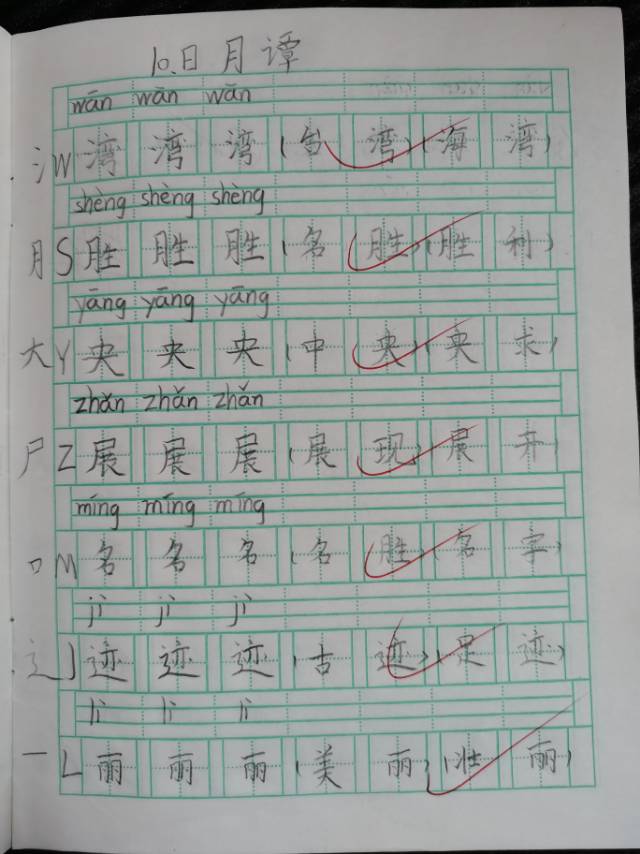 10.日月谭
wān wān wān
氵W 湾 湾 湾 (台 湾) (海 湾)
shèng shèng shèng
月 S 胜 胜 胜 (名 胜) (胜 利)
yāng yāng yāng
大 Y 央 央 央 (中 央) (央 求)
zhǎn zhǎn zhǎn
尸 Z 展 展 展 (展 现) (展 开)
míng míng míng
口 M 名 名 名 (名 胜) (名 字)
jì jì jì
辶 J 迹 迹 迹 (古 迹) (足 迹)
lì lì lì
一 L 丽 丽 丽 (美 丽) (壮 丽)